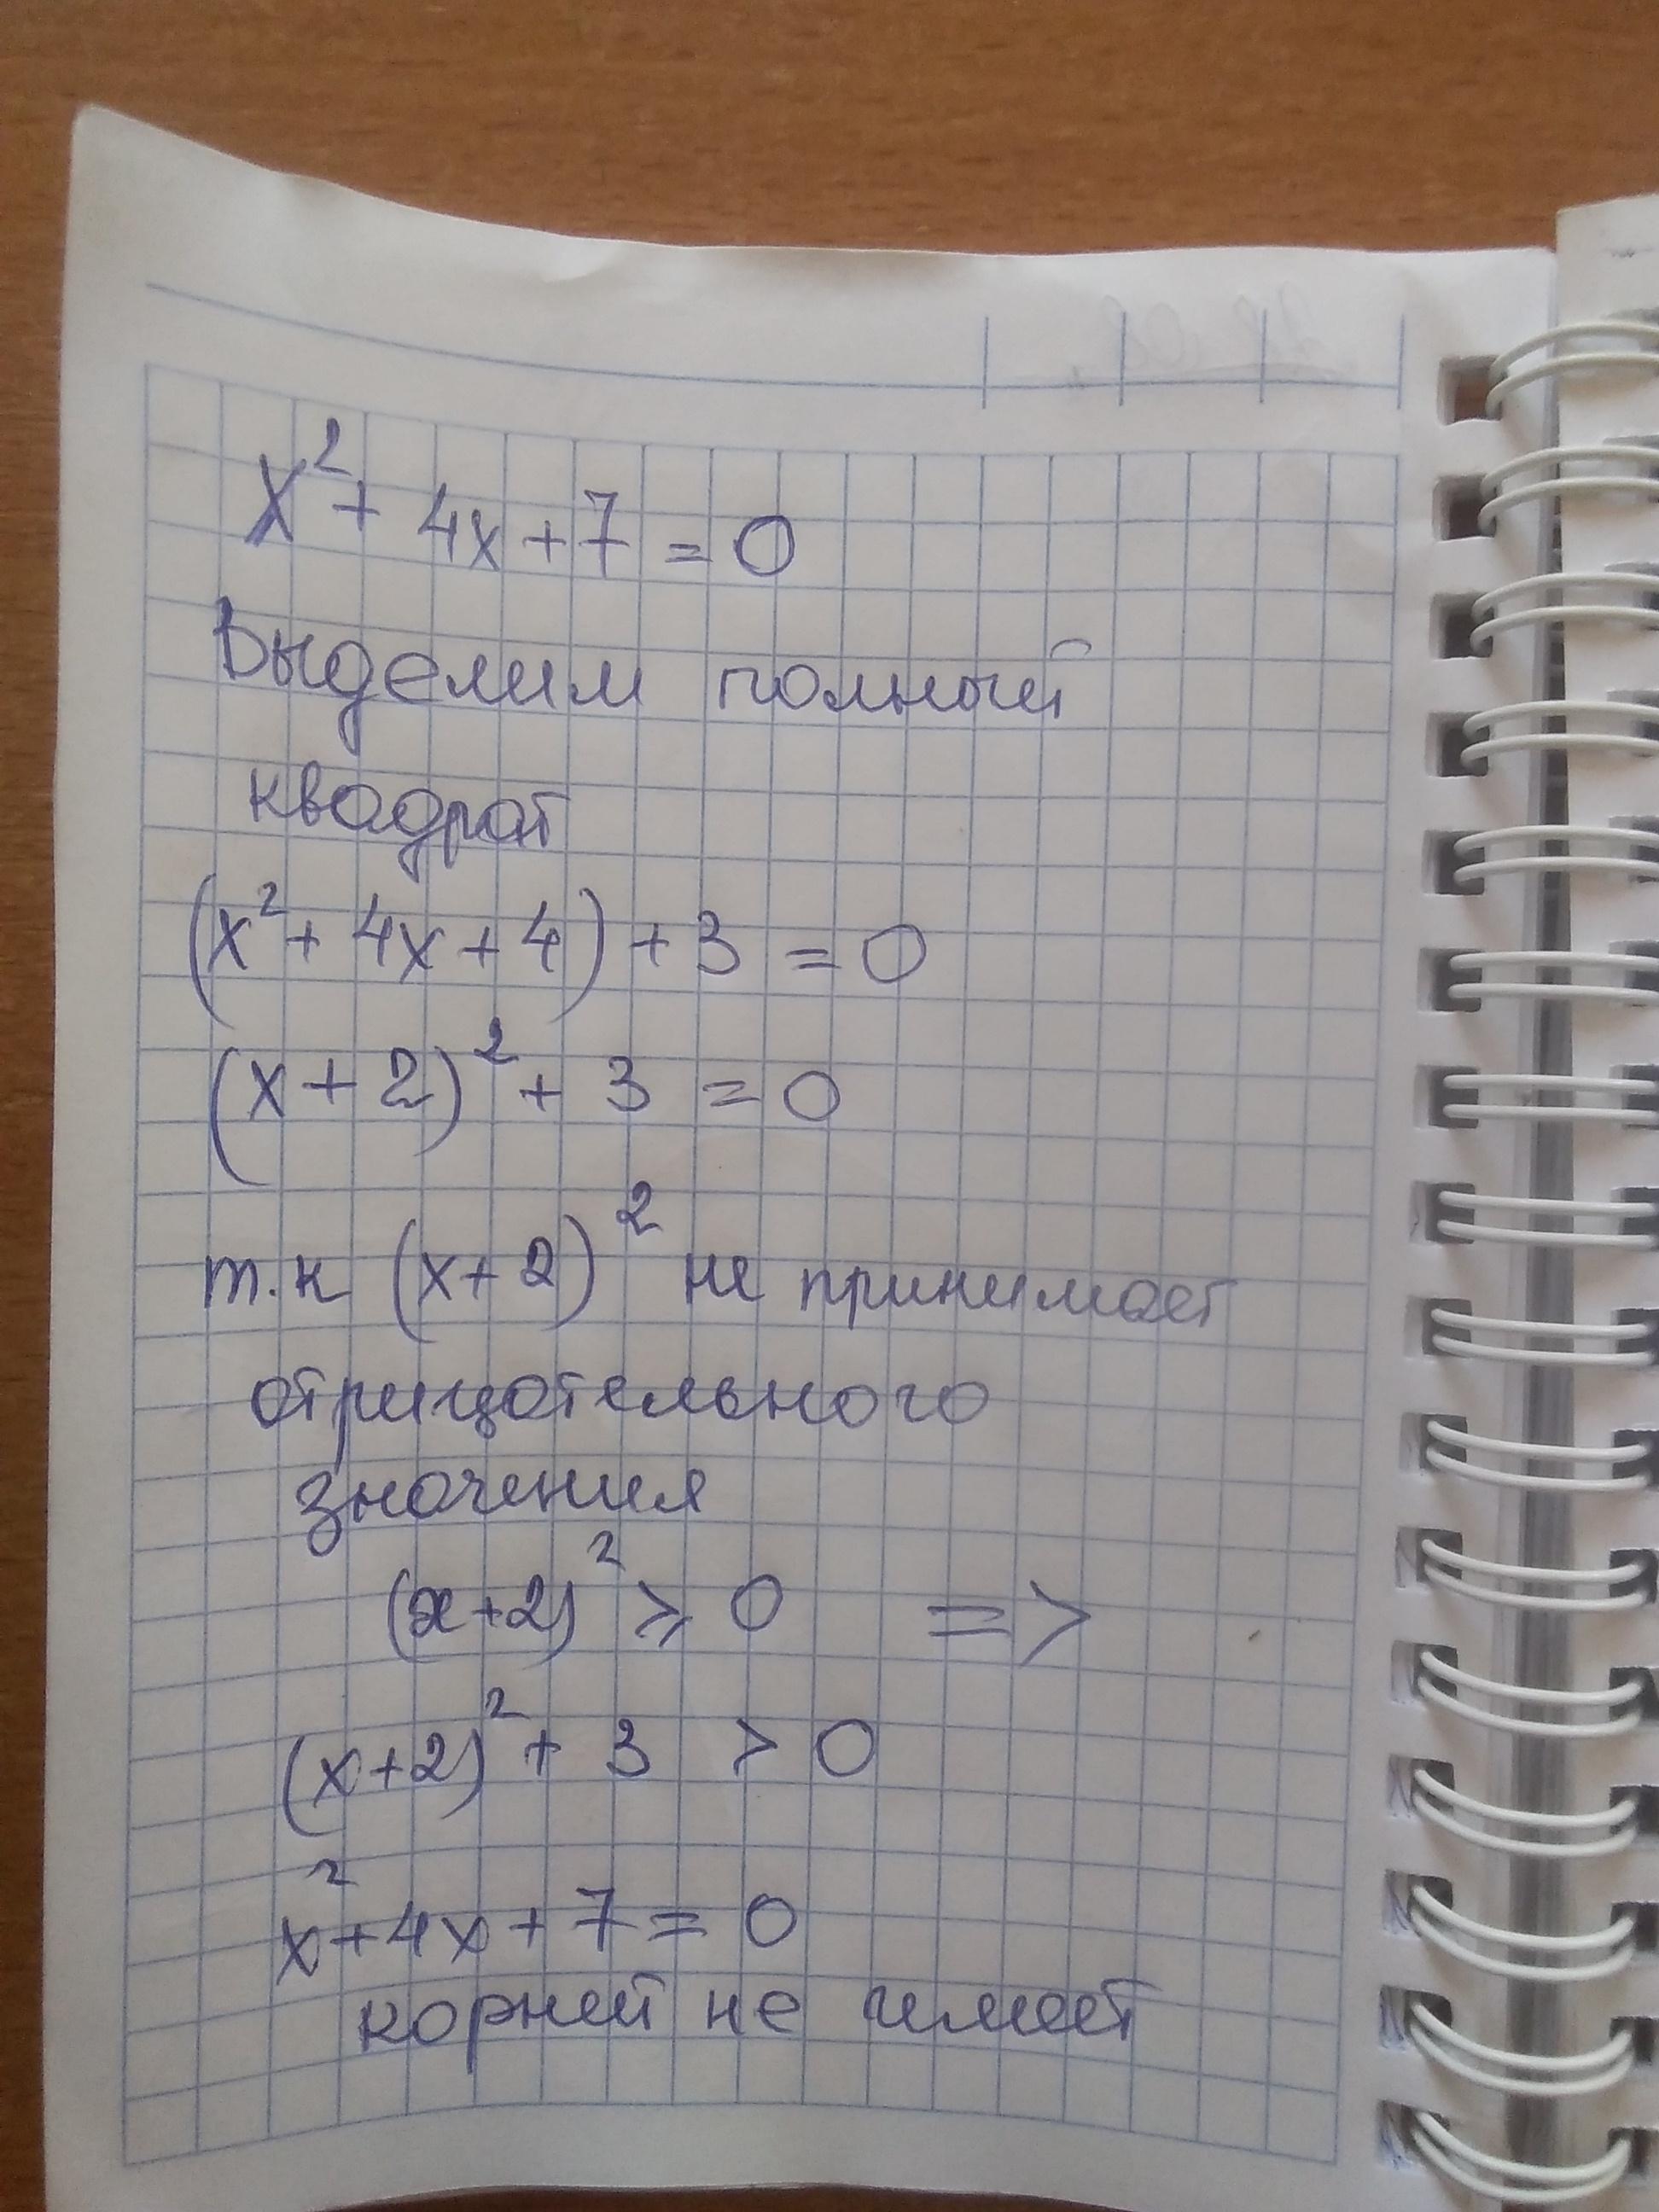 x² + 4x + 7 = 0
Выделим полный
квадрат
(x² + 4x + 4) + 3 = 0
(x + 2)² + 3 = 0
т.к (x + 2)² не принимает
отрицательного
значения
(x + 2)² ⩾ 0 =>
(x + 2)² + 3 > 0
x² + 4x + 7 = 0
корней не имеет